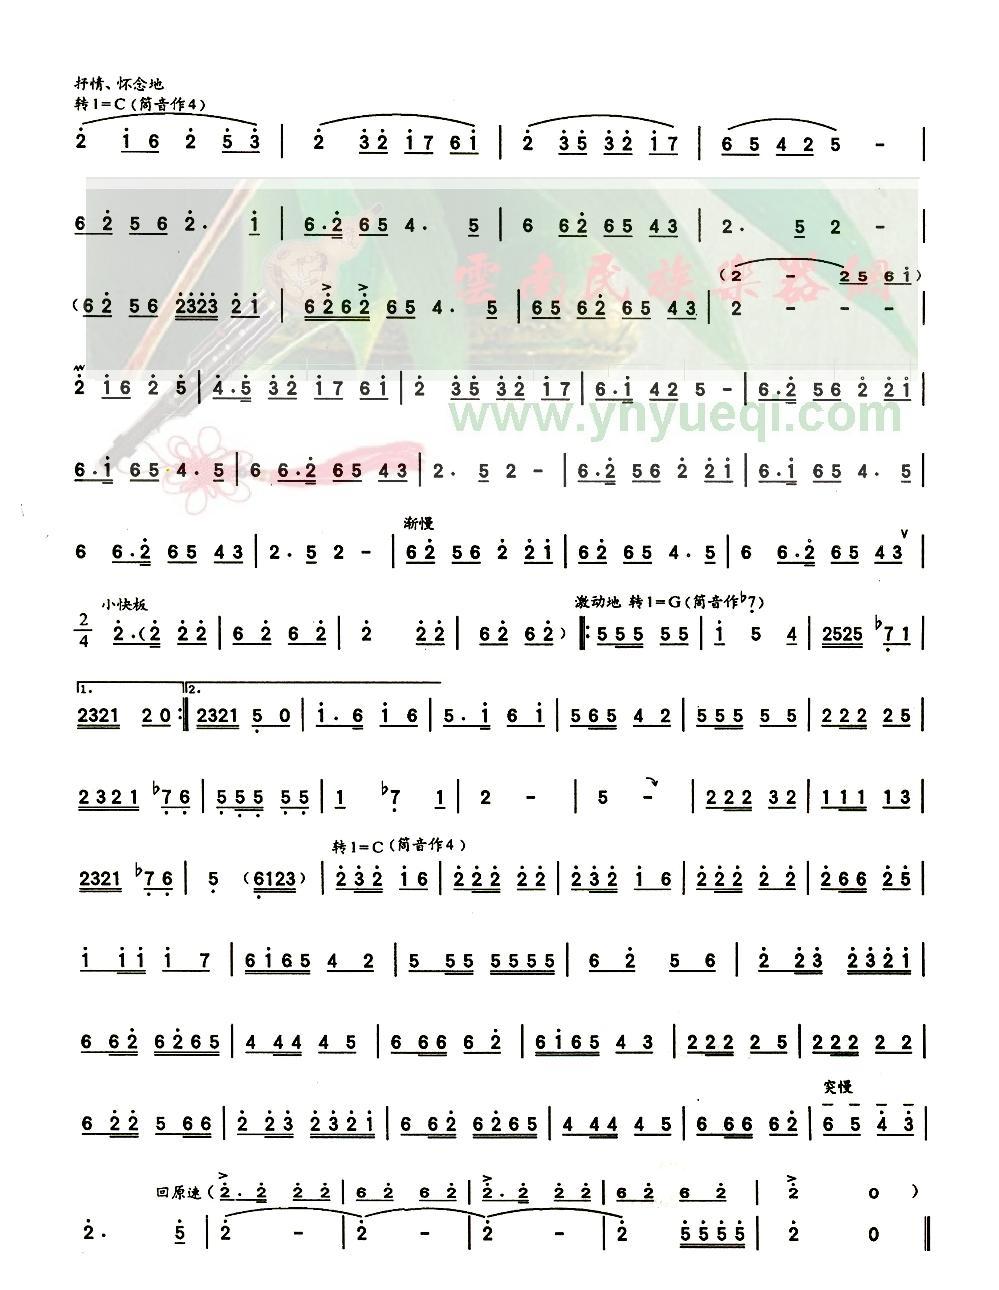 抒情、怀念地
转1=C(筒音作4)
2 i6 2 53 | 2 32 i7 6i | 2 35 32 i7 | 65 42 5 - |
62 56 2. i | 6.2 65 4. 5 | 6 62 65 43 | 2. 5 2 - |
(2 - 25 6i)
(62 56 2323 2i | 6262 65 4. 5 | 65 62 65 43 | 2 - - -
雲南民族樂器網
2 i6 2 5 | 4.5 32 i7 6i | 2 35 32 i7 | 6.i 42 5 - | 6.2 56 2 2i
www.ynyueqi.com
6.i 65 4.5 | 6 6.2 65 43 | 2. 5 2 - | 6.2 56 2 2i | 6.i 65 4. 5 |
渐慢
6 6.2 65 43 | 2. 5 2 - | 62 56 2 2i | 62 65 4.5 | 6 6.2 65 43 |
小快板 激动地 转1=G(筒音作♭7)
2/4 2.(2 22 | 62 62 | 2 22 | 62 62) |: 555 55 | i 5 4 | 2525 ♭71 |
1. 2.
2321 20 :| 2321 50 | i.6 i6 | 5.i 6i | 565 42 | 555 55 | 222 25 |
2321 ♭76 | 555 55 | 1 ♭7 1 | 2 - | 5 - | 222 32 | 111 13 |
转1=C(筒音作4)
2321 ♭76 | 5 (6123) | 232 i6 | 222 22 | 232 i6 | 222 22 | 266 25 |
i ii i 7 | 6i65 4 2 | 5 55 5555 | 6 2 5 6 | 2 23 232i |
6 62 6265 | 4 44 4 5 | 6 66 6 2 | 6i65 4 3 | 222 2 5 | 222 2 2 |
突慢
6 22 5 66 | 2 23 232i | 6 62 6265 | 4 44 4 5 | 6 66 62 | 6 5 4 3 |
回原速(2. 2 2 2 | 6 2 6 2 | 2. 2 2 2 | 6 2 6 2 | 2 0 )
2. 5 | 2 - | 2 - | 2 - | 2 5555 | 2 0 ‖